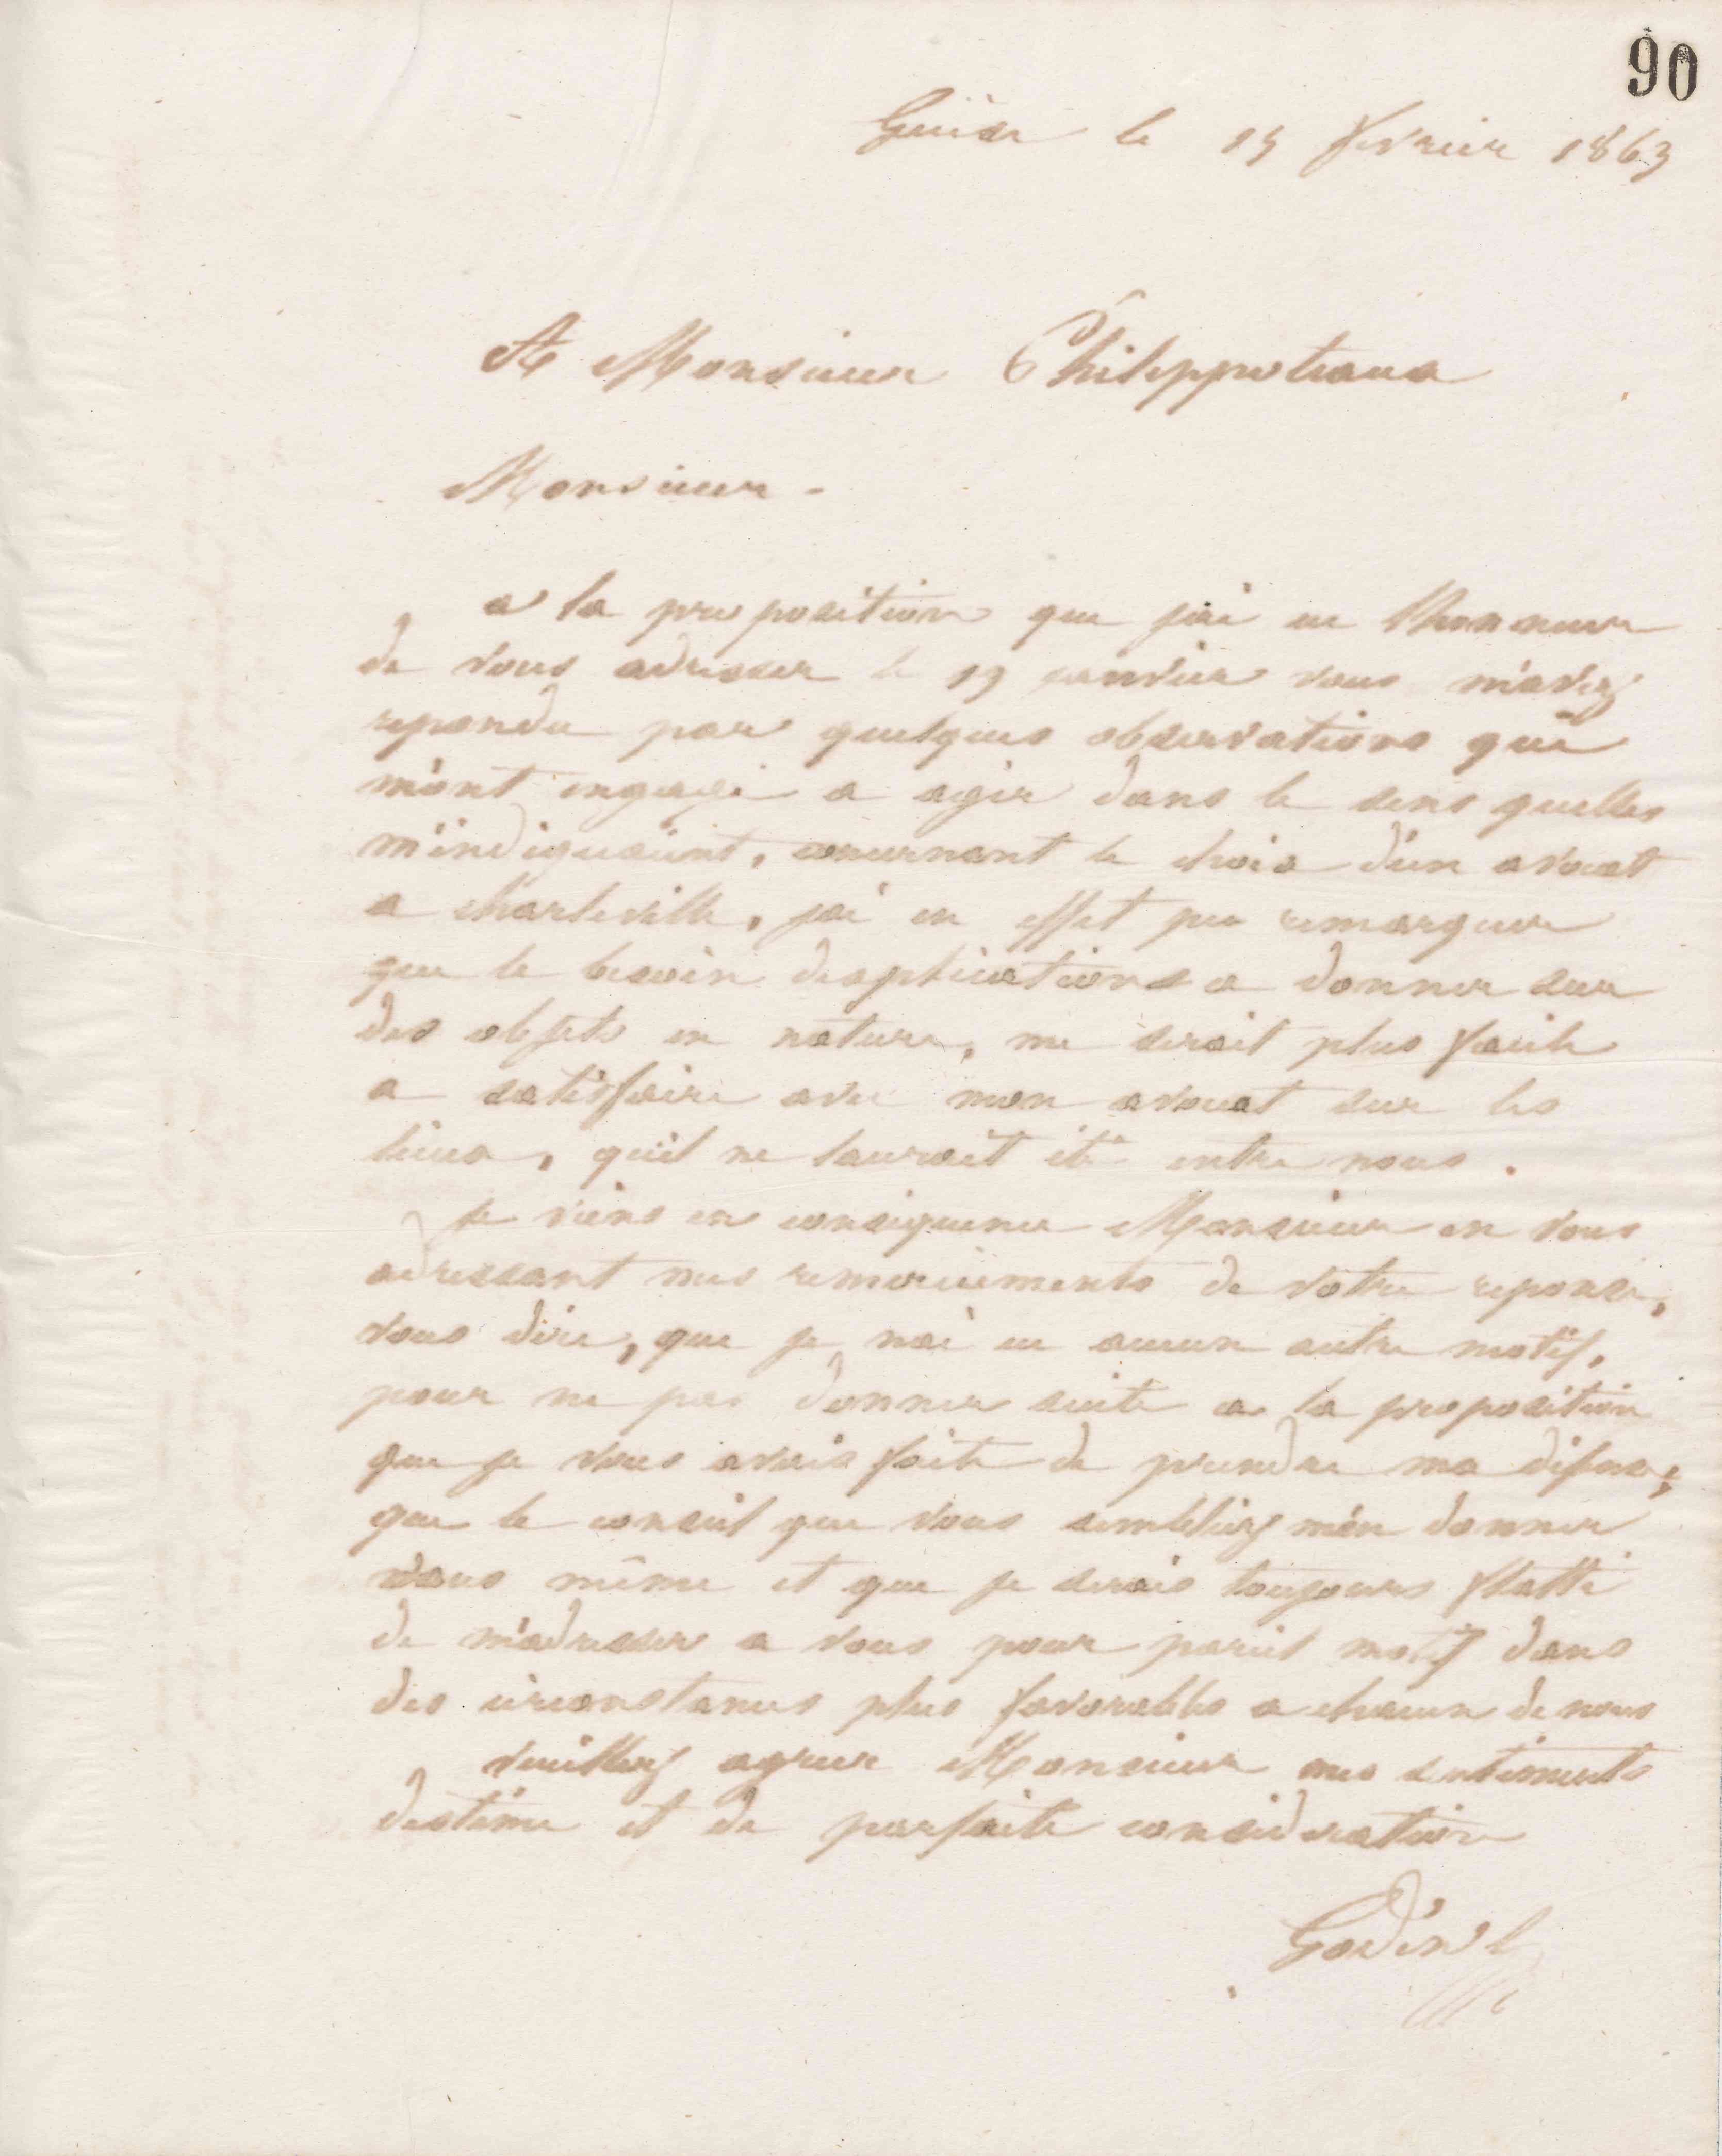 90
Guise le 15 fevrier 1863
A Monsieur Philippoteaux
Monsieur -
a la proposition que jai eu lhonneur
de vous adresser le 19 janvier vous m'avez
repondu par quelques observations qui
m'ont engagé a agir dans le sens quelles
m'indiquaient, concernant le choix d'un avocat
a charleville, jai en effet pu remarquer
que le besoin dexplications a donner sur
des objets en nature, me serait plus facile
a satisfaire avec mon avocat sur les
lieux, qu'il ne l'aurait été entre nous.
Je viens en consequence Monsieur en vous
adressant mes remerciements de votre reponse,
vous dire, que je nai eu aucun autre motif,
pour ne pas donner suite a la proposition
que je vous avais faite de prendre ma defense,
que le conseil que vous sembliez m'en donner
vous même et que je serais toujours flatté
de m'adresser a vous pour pareil motif dans
des circonstances plus favorables a chacun de nous
veuillez agreer Monsieur mes sentiments
destime et de parfaite consideration
Godin